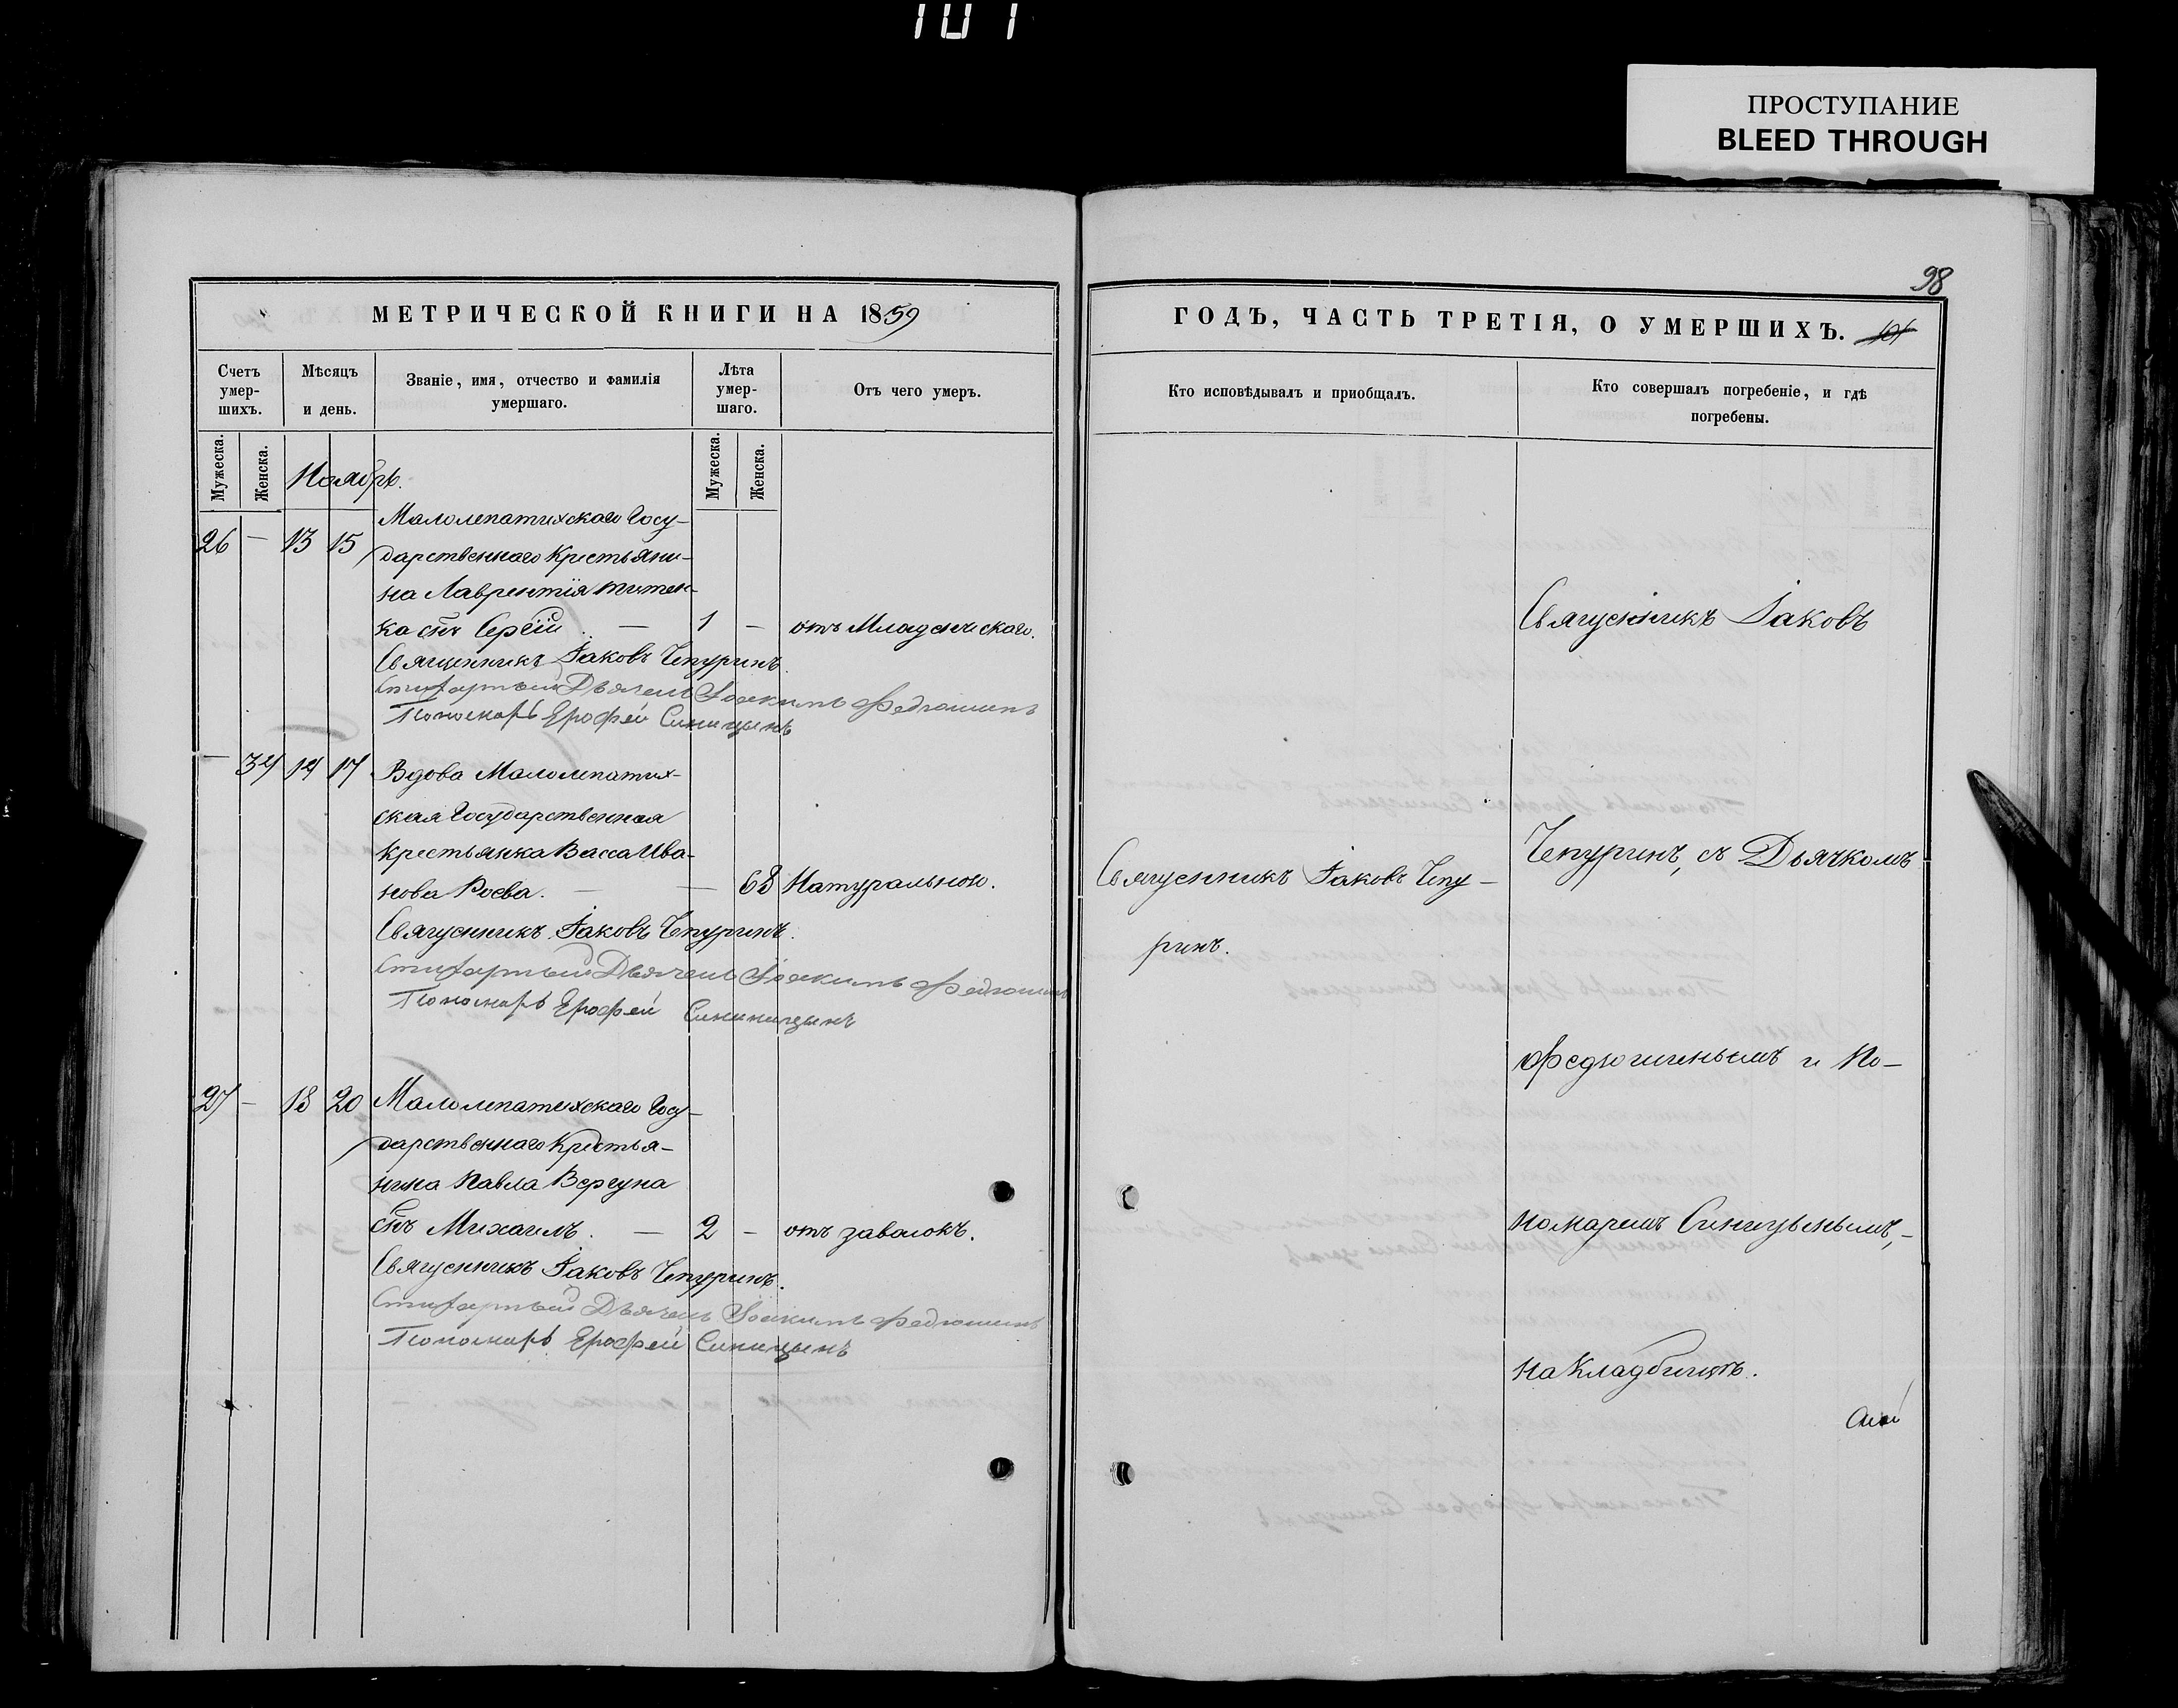 101
ПРОСТУПАНИЕ
BLEED THROUGH
98
МЕТРИЧЕСКОЙ КНИГИ НА 1859
Счетъ умер-шихъ.
Мѣсяцъ и день.
Званіе, имя, отчество и фамилія умершаго.
Лѣта умер-шаго.
Отъ чего умеръ.
Мужеска.
Женска.
Мужеска.
Женска.
Ноябрь.
Малолепатихскаго Госу-
26 — 13 15 дарственнаго Крестьяни-
на Лаврентія Титен-
ка снъ Сергій. — 1 — отъ Младенческаго.
Священникъ Іаковъ Чепуринъ.
Стихарный Дьячекъ Іоакимъ Федюшинъ
Пономарь Ерофей Синицынъ
— 34 14 17 Вдова Малолепатих-
ская Государственная
Крестьянка Васса Ива-
нова Роева. — — 68 Натуральною.
Священникъ Іаковъ Чепуринъ.
Стихарный Дьячекъ Іоакимъ Федюшинъ
Пономарь Ерофей Синицынъ
27 — 18 20 Малолепатихскаго Госу-
дарственнаго Крестья-
нина Павла Вергуна
снъ Михаилъ. — 2 — отъ завалокъ.
Священникъ Іаковъ Чепуринъ.
Стихарный Дьячекъ Іоакимъ Федюшинъ
Пономарь Ерофей Синицынъ
ГОДЪ, ЧАСТЬ ТРЕТІЯ, О УМЕРШИХЪ. 101
Кто исповѣдывалъ и приобщалъ.
Кто совершалъ погребеніе, и гдѣ погребены.
Священникъ Іаковъ Чепу-
ринъ.
Священникъ Іаковъ
Чепуринъ, съ Дьячкомъ
Федюшинымъ и По-
номаремъ Синицынымъ, —
на Кладбищѣ.